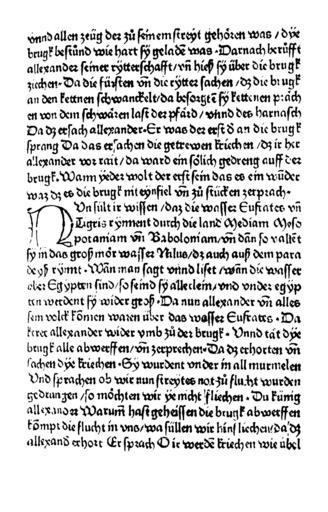 vnnd allen zeüg der zů seinem streyt gehören was / dye
brugk bestünd wie hart sy geladen̄ was · Darnach berüfft
allexander seiner rytterschafft / vn̄ hieß sy über die brugk
ziehen · Da die fürsten vn̄ die rytter sachen / dz die brugk
an den kettnen schwanckelt / da besorgten̄ sy kettinen prāch
en von dem schwären last der pfärd / vnnd des harnasch
Da dz ersach allexander · Er was der erst ð an die brugk
sprang Da das ersachen die getrewen kriechen / dz ir her
allexander vor rait / da ward ein sölich gedreng auff der
brugk · Wann yeder wolt der erst sein das es ein wūder
waz dz es die brugk mit eynsiel vn̄ zů stücken zerprach ·
NUn sült ir wissen / daz die wasser Eufrates vn̄
Tigris rynnent durch die land Mediam Meso
potaniam vn̄ Baboloniam / vn̄ dān so valēt
sy in das groß mōr wasser Nilus / dz auch auß dem para
deyß rynnt · Wān man sagt vnnd liset / wān die wasser
ober Egypten sind / so seind sy alle clein / vnd vnder egyp
ten werdent sy wider groß · Da nun allexander vn̄ alles
sein volck kōmen waren über das wasser Eufrates · Da
keret allexander wider vmb zů der brugk · Vnnd tät dye
brugk alle abwerffen / vn̄ zerprechen · Da dz erhorten vn̄
sachen dye kriechen · Sy wurdent vnder in all murmelen
Vnd sprachen ob wir nun streytes not zů flucht wurden
gedrungen / so möchten wir ye nicht fliechen · Du künig
allexander Warum̄ hast geheissen die brugk abwerffen
kōmpt die flucht in vns / wa süllen wir hin fliechen / da dz
allexand erhort Er sprach O ir werdē kriechen wie übel